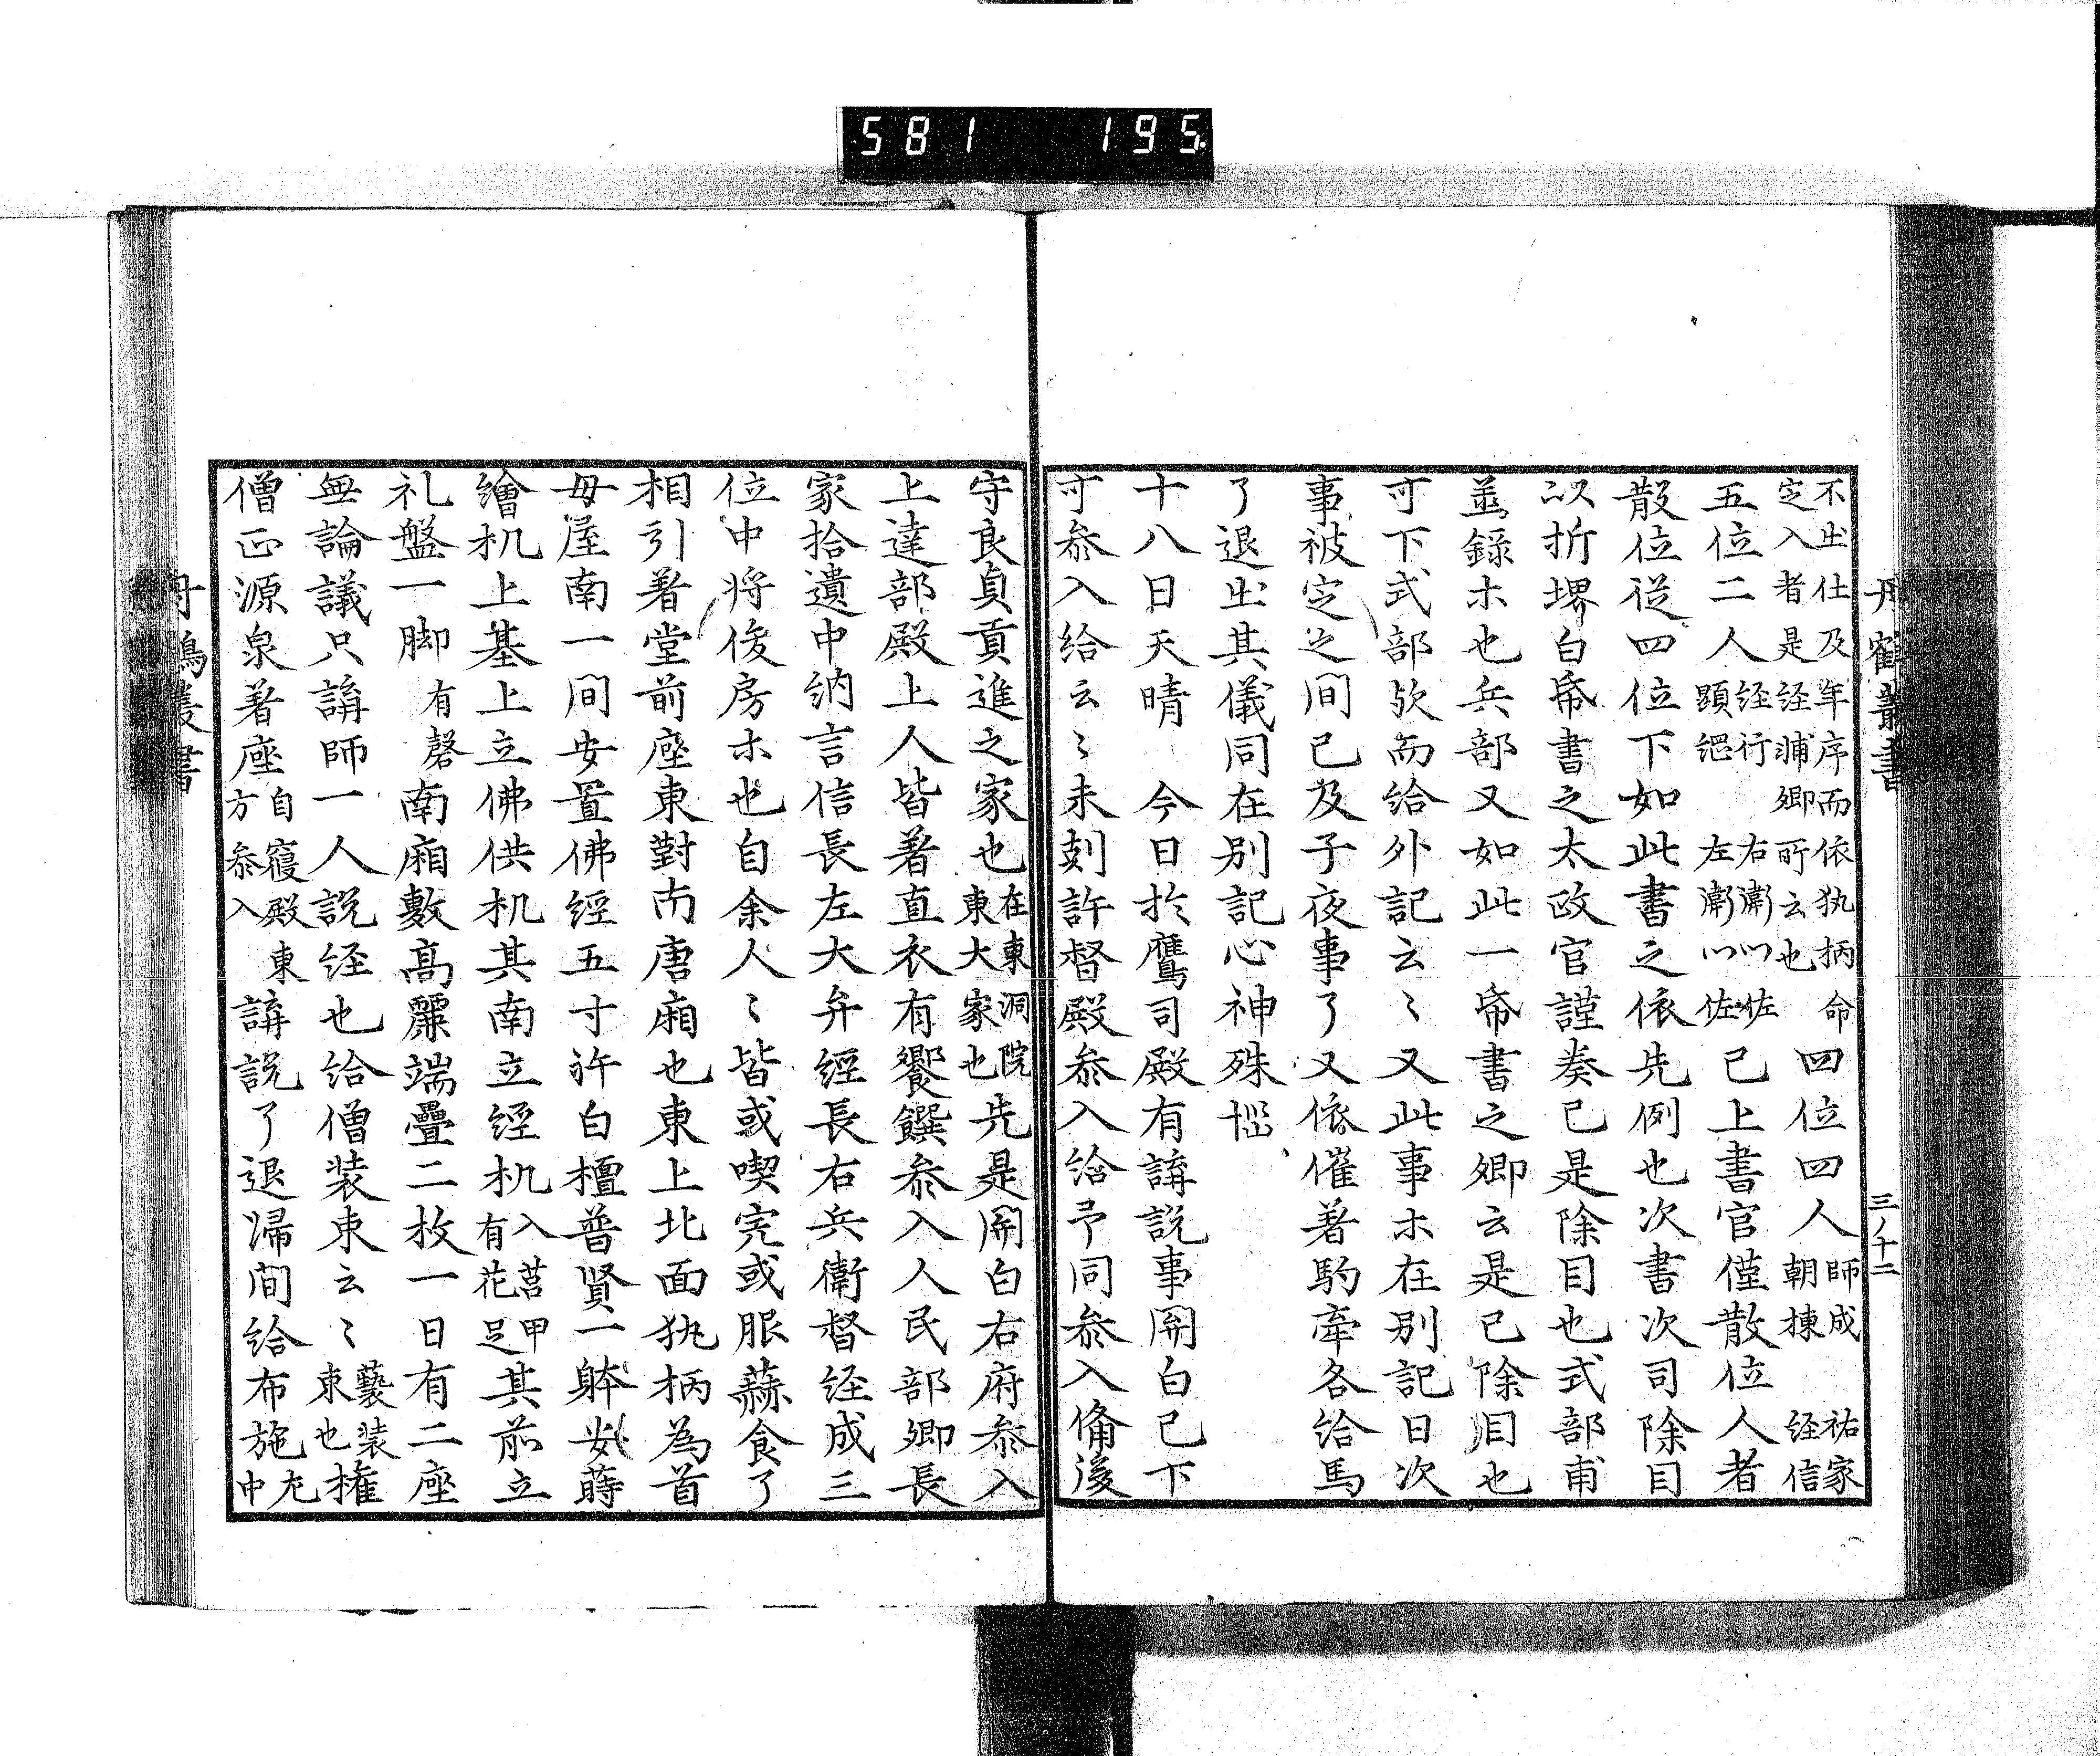 581 195
丹鶴叢書
三ノ十二
不出仕及年序而依執柄命
定入者是経浦卿所云也
四位四人
師成 祐家
朝棟 経信
五位二人
経行 右衛門佐
顕綱 左衛門佐
已上書官僅散位人者
散位従四位下如此書之依先例也次書次司除目
以折堺白帋書之太政官謹奏已是除目也式部甫
並錄ホ也兵部又如此一帋書之卿云是已除目也
可下式部欤而給外記云〻又此事ホ在別記日次
事被定之间已及子夜事了又依催著駒牽各給馬
了退出其儀同在別記心神殊悩
十八日天晴 今日於鷹司殿有講説事関白已下
可参入給云〻未刻許督殿参入給予同参入俻後
守良貞貢進之家也
在東洞院
東大家也
先是関白右府参入
上達部殿上人皆著直衣有饗饌参入人民部卿長
家拾遺中納言信長左大弁經長右兵衛督経成三
位中将俊房ホ也自余人〻皆或喫完或服蒜食了
相引著堂前座東對南唐廂也東上北面執柄為首
母屋南一间安置佛經五寸許白檀普賢一躰安蒔
繪机上基上立佛供机其南立経机
入莒甲
有花足
其前立
礼盤一脚
有磬
南廂敷高麗端疊二枚一日有二座
無論議只講師一人説経也給僧装束云〻
褻装
束也
権
僧正源泉著座
自寝殿東
方参入
講説了退帰间給布施
左
中